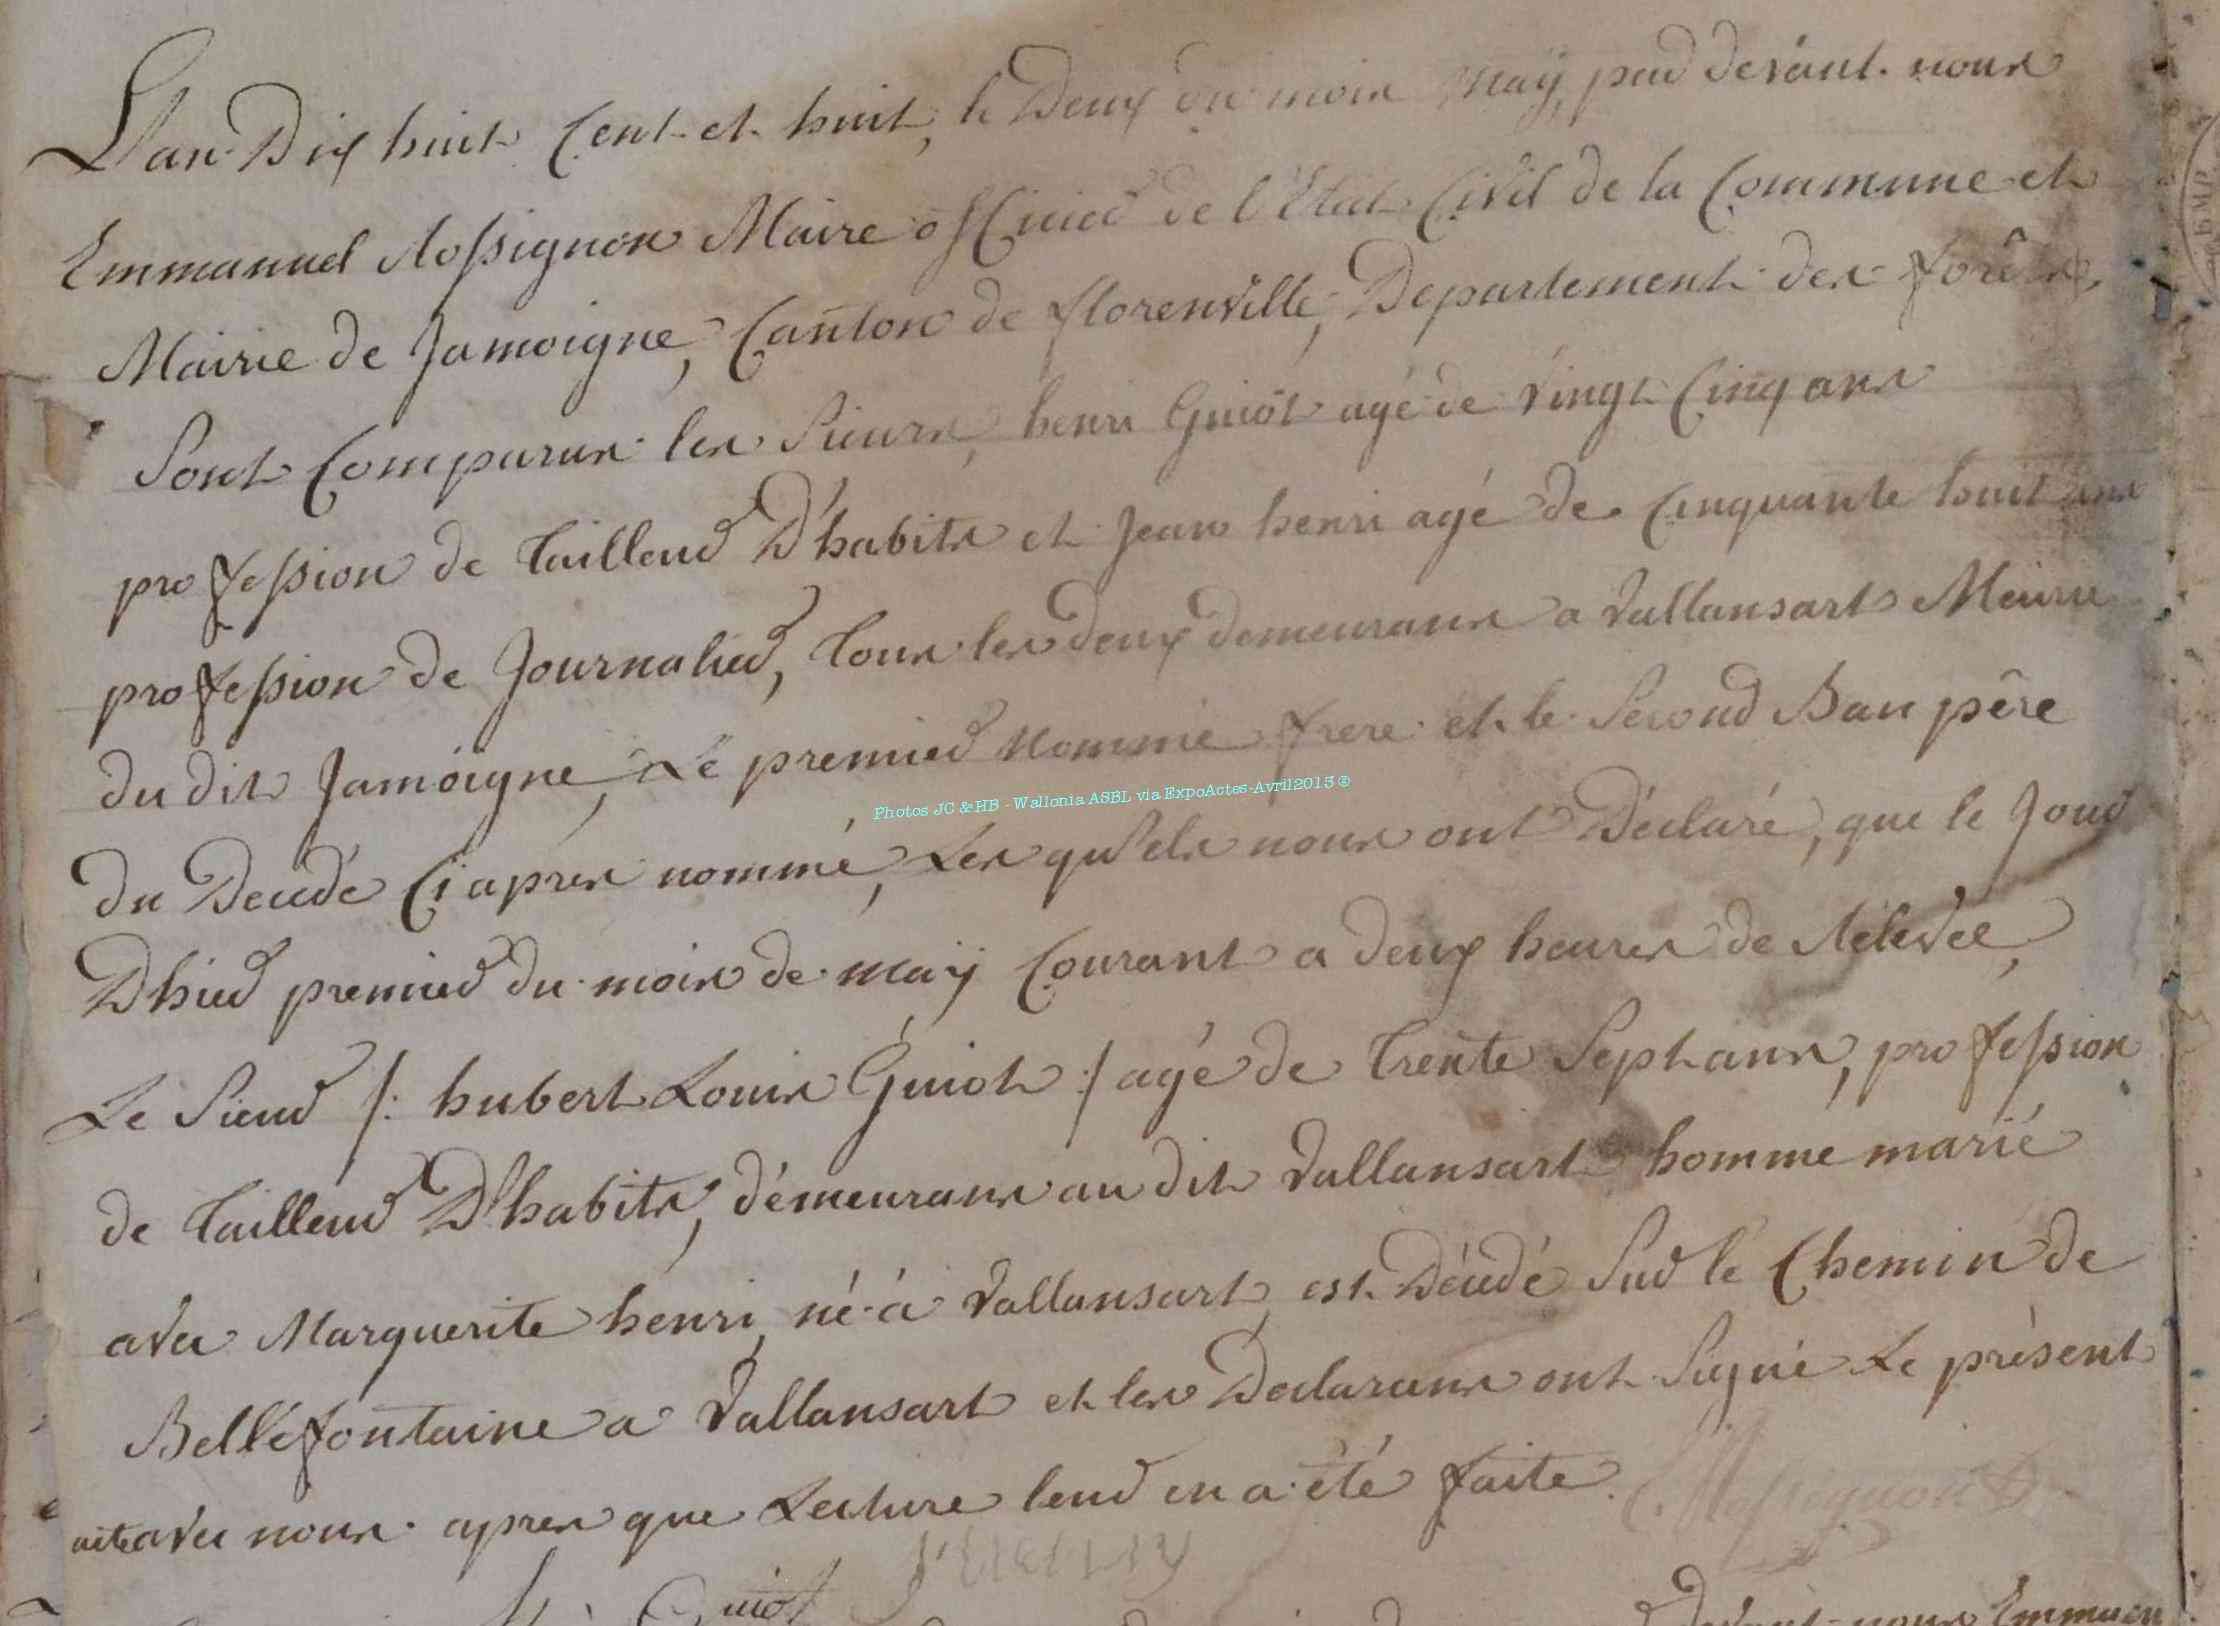 L'an Dix huit Cent et huit, le Deux du mois Maÿ, par devant nous
Emmanuel Rossignon Maire officier de l'Etat Civil de la Commune et
Mairie de Jamoigne, Canton de florenville, Departement des forêts,
Sont Comparus les Sieurs, henri Guiot agé de vingt Cinq ans
profession de Tailleur D'habits et Jean henri agé de Cinquante huit ans
profession de Journalier, Tous les deux demeurans a Vallansart Mairie
du dit Jamoigne, Le premier Nommé frere et le Second Bau pêre
du Decedé Ci apres nommé, Les quels nous ont Déclaré, que le Jour
D'hier premier du mois de maÿ Courant a deux heures de Rélevée,
Le Sieur /: hubert Louis Guiot :/ agé de Trente Sept ans, profession
de Tailleur D'habits, démeurans au dit Vallansart homme marié
avec Marguerite henri, né à Vallansart, est Décédé Sur le Chemin de
Bellefontaine a Vallansart et les Declarans ont Signé Le présent
acte avec nous apres que Lecture leur en a été faite.
Rossignon
Guiot
devant nous Emmuan
Photos JC & HB - Wallonia ASBL via ExpoActes-Avril2015 ©